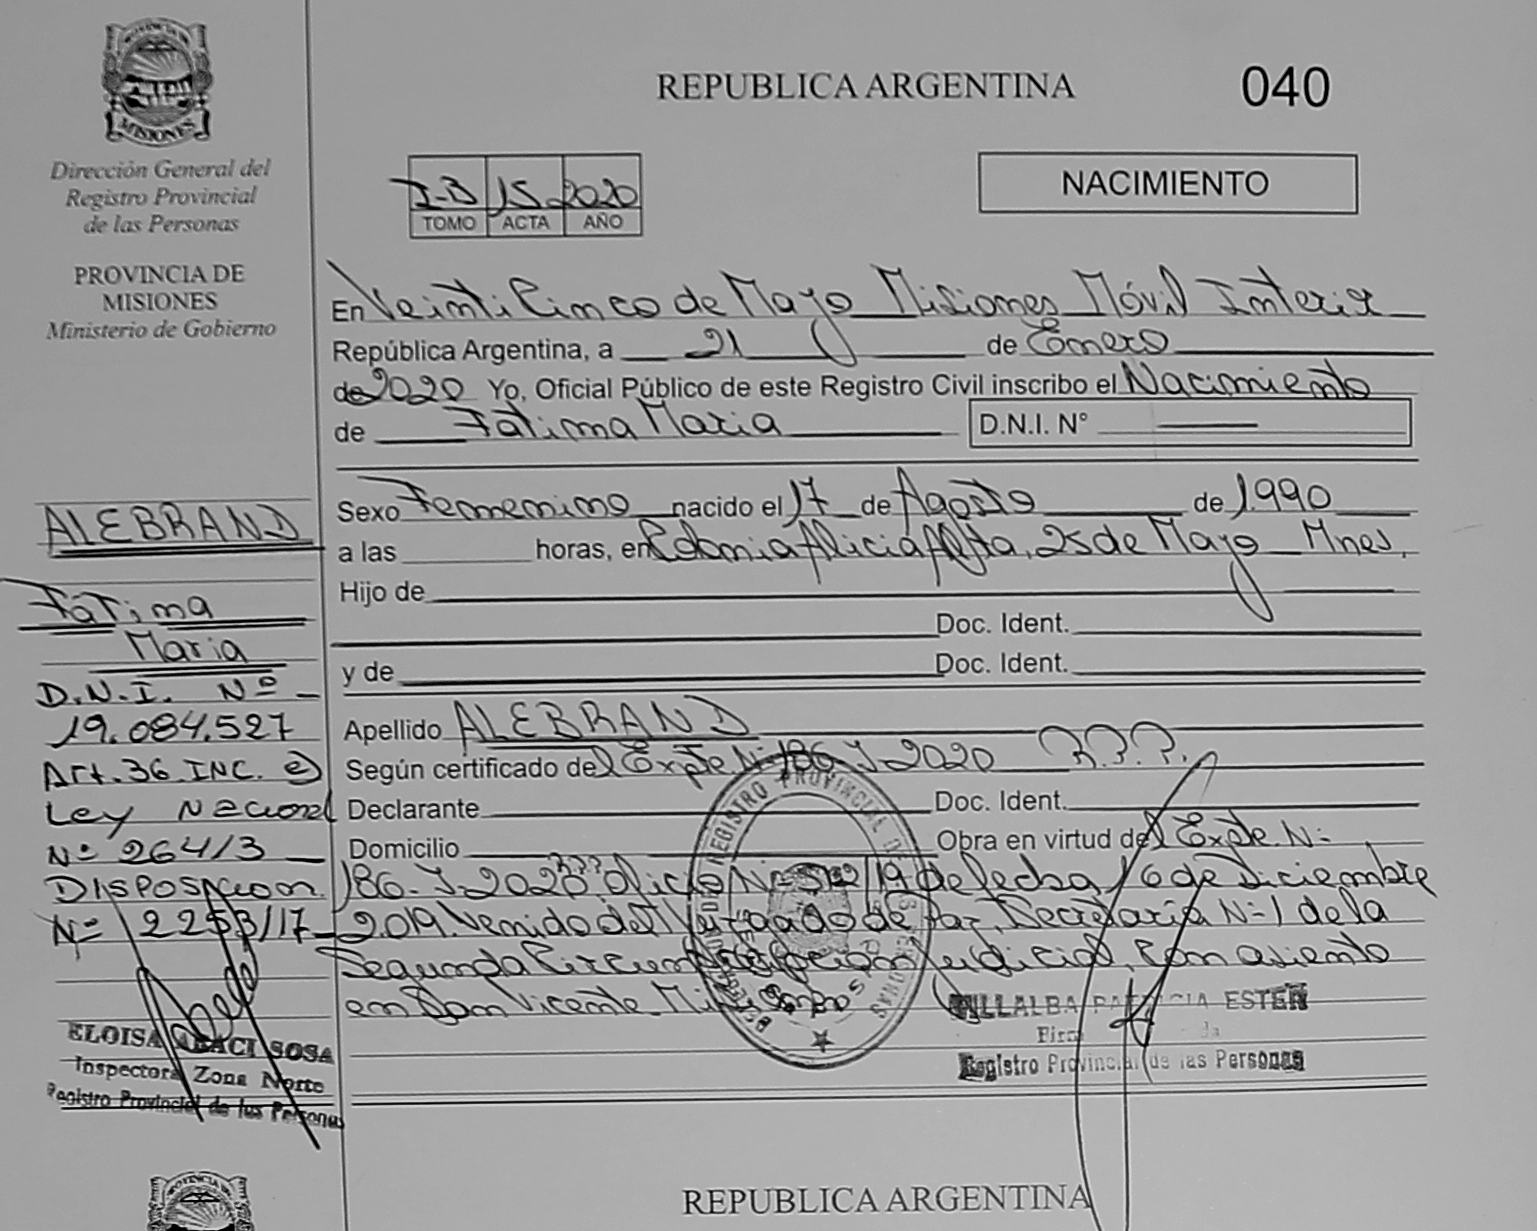 MISIONES
Dirección General del
Registro Provincial
de las Personas
PROVINCIA DE
MISIONES
Ministerio de Gobierno
ALEBRAND
Fátima
Maria
D.N.I. Nº
19.084.527
Art. 36 INC. e)
Ley Nacional
Nº 26413
DISPOSICION
Nº 2253/17
ELOISA ARACI SOSA
Inspectora Zona Norte
Registro Provincial de las Personas
REPUBLICA ARGENTINA 040
I-B 15 2020
TOMO ACTA AÑO
NACIMIENTO
En Veinti Cinco de Mayo Misiones Móvil Interior
República Argentina, a 21 de Enero
de 2020 Yo, Oficial Público de este Registro Civil inscribo el Nacimiento
de Fátima Maria D.N.I. N°
Sexo Femenino nacido el 17 de Agosto de 1.990
a las horas, en Colonia Alicia Alta, 25 de Mayo Mnes.
Hijo de
Doc. Ident.
y de Doc. Ident.
Apellido ALEBRAND
Según certificado del Expte Nº 186-J-2020 R.P.P.
Declarante Doc. Ident.
Domicilio Obra en virtud del Expte. Nº
186-J-2020 Oficio Nº /19 de fecha 16 de Diciembre
2.019. Venido del Juzgado de Paz, Secretaría Nº 1 de la
Segunda Circunscripción Judicial, Con asiento
en San Vicente Misiones
REGISTRO PROVINCIAL DE LAS PERSONAS
VILLALBA PATRICIA ESTER
Registro Provincial de las Personas
REPUBLICA ARGENTINA